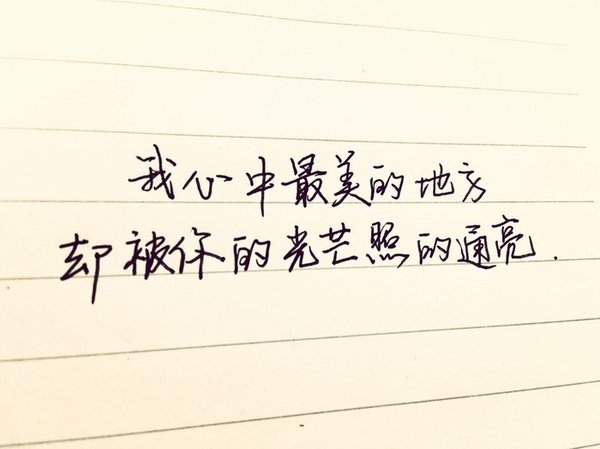 我心中最美的地方
却被你的光芒照的通亮.